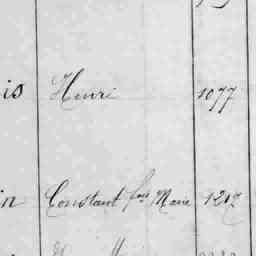 is Henri 1077
in Constant fois Marie 1217